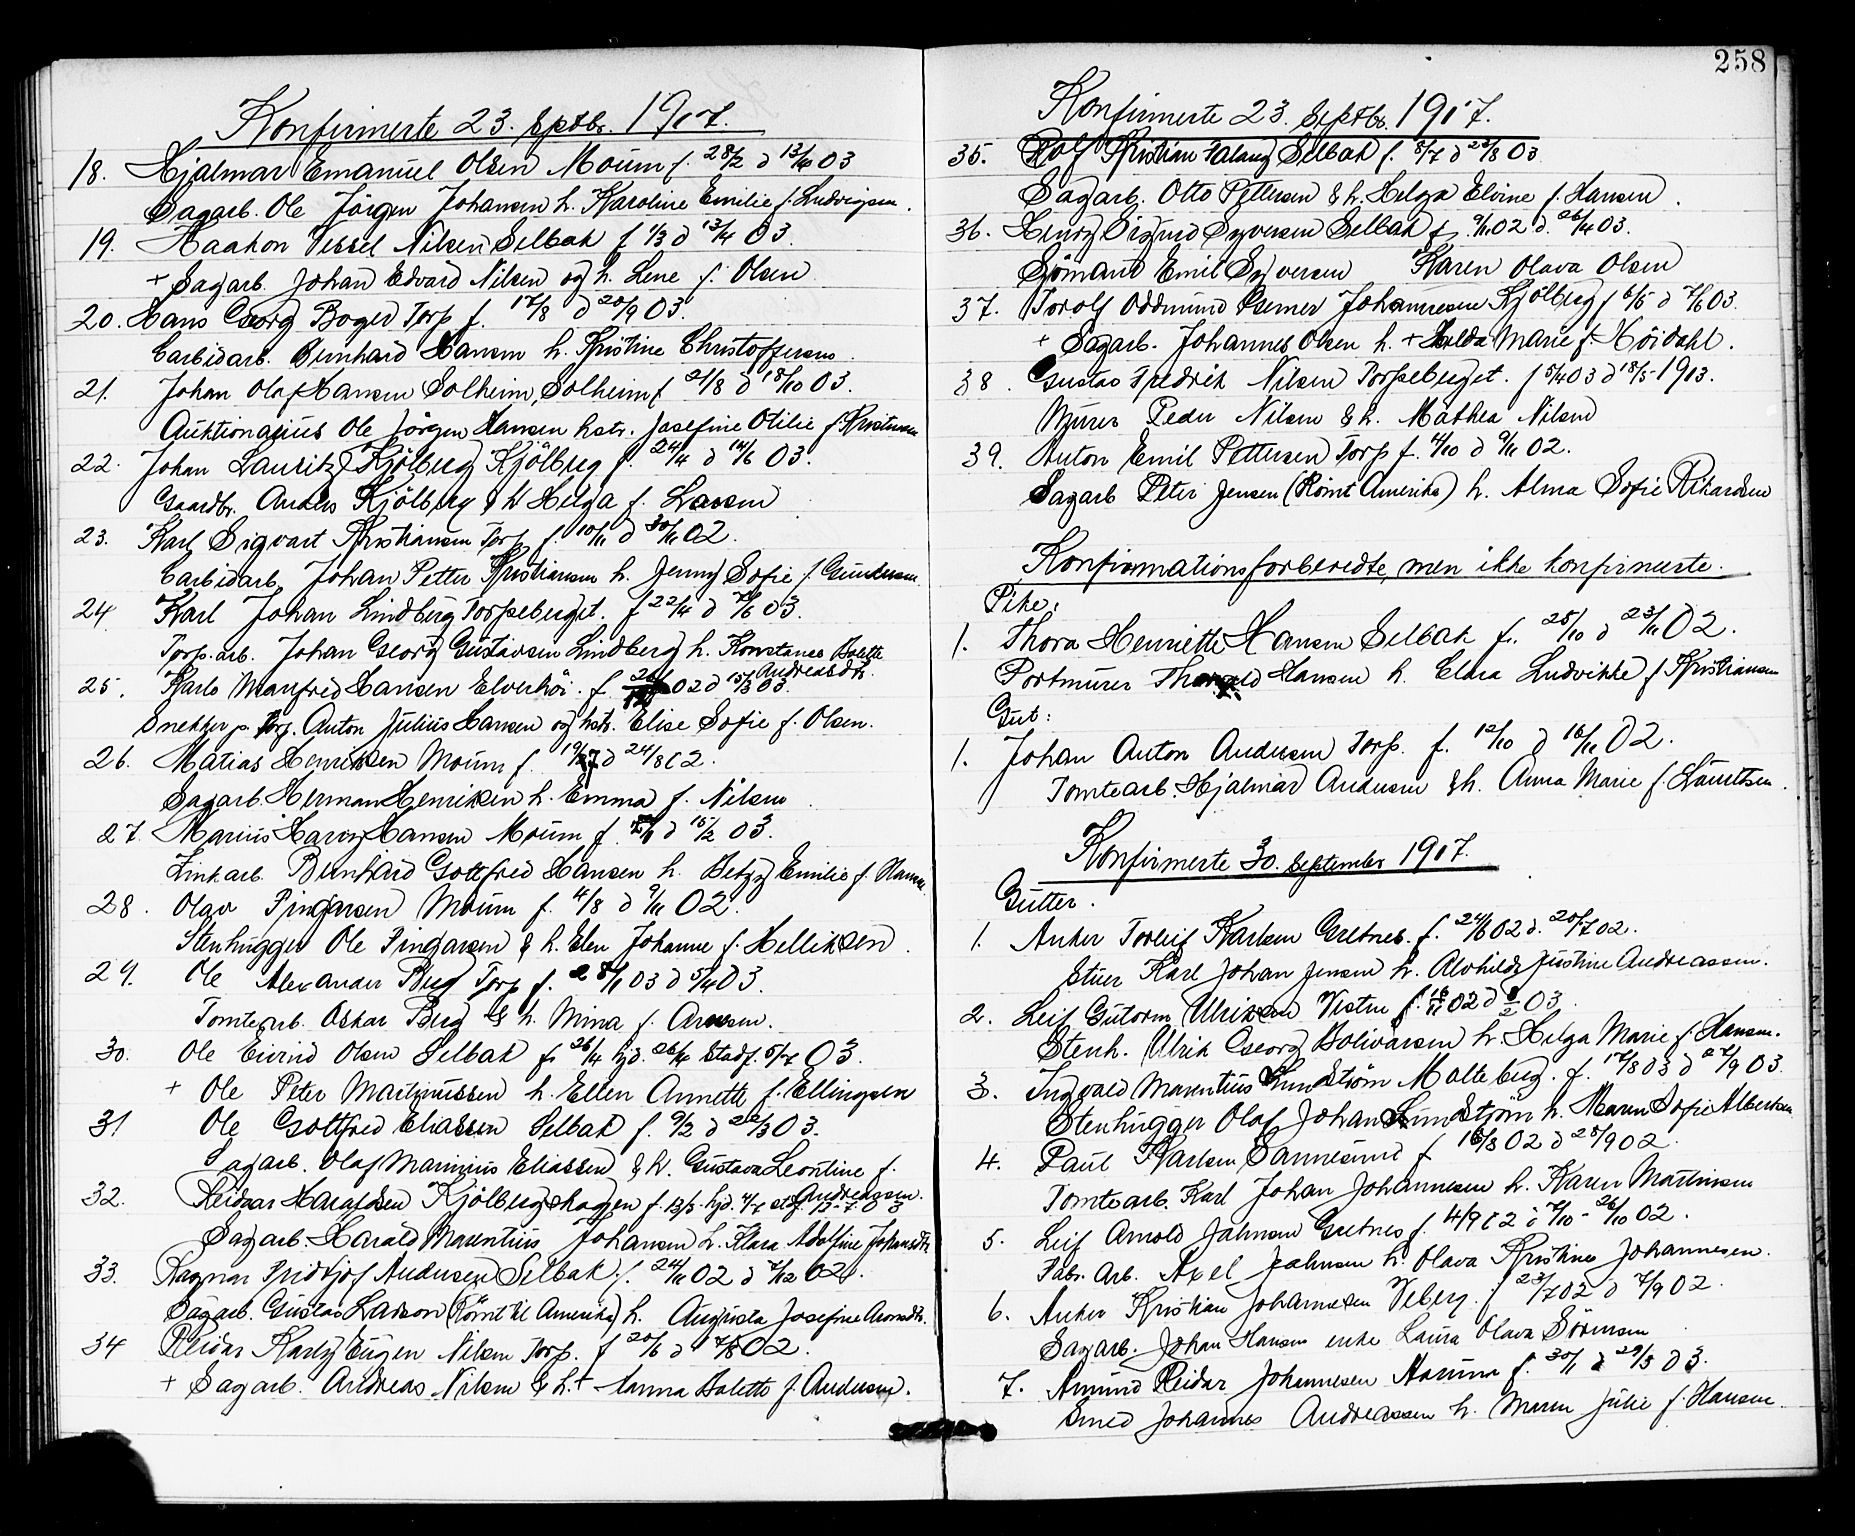 Konfirmerte 23. Septbr. 1917.
18. Hjalmar Emanuel Olsen Moum f. 28/2 d 13/4 03
Sagarb. Ole Jörgen Johansen h. Karoline Emilie f. Ludvigsen.
19. Haakon Vessel Nilsen Selbak f 1/3 d 13/4 03.
+ Sagarb. Johan Edvard Nilsen og h. Lene f. Olsen
20. Hans Georg Boger Torp f. 17/8 d 20/9 03.
Carbidarb. Bernhard Hansen h. Kristine Christoffersen.
21. Johan Olaf Hansen Solheim, Solheim f 21/8 d 18/10 03.
Auktionarius Ole Jörgen Hansen hstr. Josefine Otilie f. Kristensen
22. Johan Lauritz Kjölberg Kjölberg f. 24/4 d 14/6 03.
Gaardbr. Anders Kjölberg & h Helga f. Larsen
23. Karl Sigvart Kristiansen Torp f. 10/11 d 30/11 02.
Carbidarb. Johan Petter Kristiansen h. Jenny Sofie f. Gundersen.
24. Karl Johan Lindberg Torpeberget. f 22/4 d 7/6 03.
Torp. arb. Johan Georg Gustavsen Lindberg h. Konstance Bolette
Andreasdtr.
25. Karlo Manfred Hansen Elverhöi. f. 02 d 15/3 03.
Snekker p. Torp. Anton Julius Hansen og hstr. Elise Sofie f. Olsen.
26. Matias Henriksen Moum f. 19/7 d 24/8 02.
Sagarb. Herman Henriksen h. Emma f. Nilsen
27. Marius Harry Hansen Moum f. d 15/2 03.
Zinkarb. Bernhard Gottfred Hansen h. Betzy Emilie f. Hansen
28. Olav Pingarsen Moum f. 4/8 d 9/11 02.
Stenhugger Ole Pingarsen & h. Elen Johanne f. Helliksen.
29. Ole Alexander Berg Torp f. 28/1 03 d 5/4 03.
Tomtearb. Oskar Berg & h. Mina f. Arvesen.
30. Ole Eivind Olsen Selbak f. 26/4 hjd. 26/4 stadf. 5/7 03.
+ Ole Peter Martinussen h. Ellen Annette f. Ellingsen
31 Ole Gottfred Eliassen Selbak f. 9/2 d 22/3 03.
Sagarb. Olaf Marinius Eliassen & h. Gustava Leontine f.
Andreassen.
32. Reidar Haraldsen Kjölbergskogen f. 13/5. hjd. 4/7 stf. 15-7-03
Sagarb. Harald Marentius Johansen h. Klara Adolfine Johansdtr
33. Ragnar Fridtjof Andersen Selbak. f. 24/11 02 d 7/12 02.
Sagarb. Gustav Larsson (Römt til Amerika) h. Augusta Josefine Aronsdtr.
34 Reidar Karly Eugen Nilsen Torp. f 20/6 d 7/8 02.
+ Sagarb. Andreas Nilsen & h. + Hanna Bolette f. Andersen.
258
Konfirmerte 23. Septbr. 1917.
35. Rolf Kristian Falang Selbak f. 8/7 d 23/8 03
Sagarb. Otto Pettersen & h. Helga Elvine f. Hansen.
36. Henry Sigurd Syversen Selbak f. 9/11 02 d. 26/4 03.
Sjömand Emil Syversen Karen Olava Olsen
37. Torolf Oddmund Gerner Johannesen Kjölberg f 6/5 d 7/6 03.
+ Sagarb. Johannes Olsen h. + Hulda Marie f. Höidahl.
38. Gustav Fredrik Nilsen Torpeberget. f 5/4 03 d 18/5-1903.
Murer Peder Nilsen & h. Mathea Nilsen
39. Anton Emil Pettersen Torp f. 4/10 d 9/11 02.
Sagarb Peter Jensen (Römt Amerika) h. Alma Sofie Rikardsen
Konfirmationsforberedte, men ikke konfirmerte.
Pike:
1. Thora Henriette Hansen Selbak f. 25/10 d 23/11 02.
Portmurer Thorvald Hansen h. Clara Ludvikke f. Kristiansen
Gut:
1. Johan Anton Andersen Torp. f. 12/10 d 16/11 02.
Tomtearb. Hjalmar Andersen & h. Anna Marie f. Lauritsen.
Konfirmerte 30. September 1917.
Gutter.
1. Anker Torleif Karlsen Gretnes. f. 24/6 02 d. 20/7 02.
Stuer Karl Johan Jensen h. Alvhilde Justine Andreassen.
2. Leif Gutorm Ulriksen Visten f. 02 d 8/2 03.
Stenh. Ulrik Georg Bolivarsen h. Helga Marie f. Hansen.
3. Ingvald Marentius Lundström Malteberg. f. 17/8 03 d 27/9 03.
Stenhugger Olaf Johan Lundström h. Maren Sofie Albertsen
4. Paul Karlsen Sannesund f 16/8 02 d 28/9 02.
Tomtearb. Karl Johan Johannesen h. Karen Martinsen
5. Leif Arnold Jahnsen Gretnes f. 4/9 02 d 7/10 - 26/10 02.
Fabr. Arb. Axel Jahnsen h. Olava Kristine Johannesen.
6. Anker Kristian Johannesen Veberg. f 23/7 02 d 7/9 02
Sagarb. Johan Hansen enke Laura Olava Sörensen
7. Amund Reidar Johannesen Haruna f. 30/1 d 29/3 03.
Smed Johannes Andreassen h. Maren Julie f. Hansen.